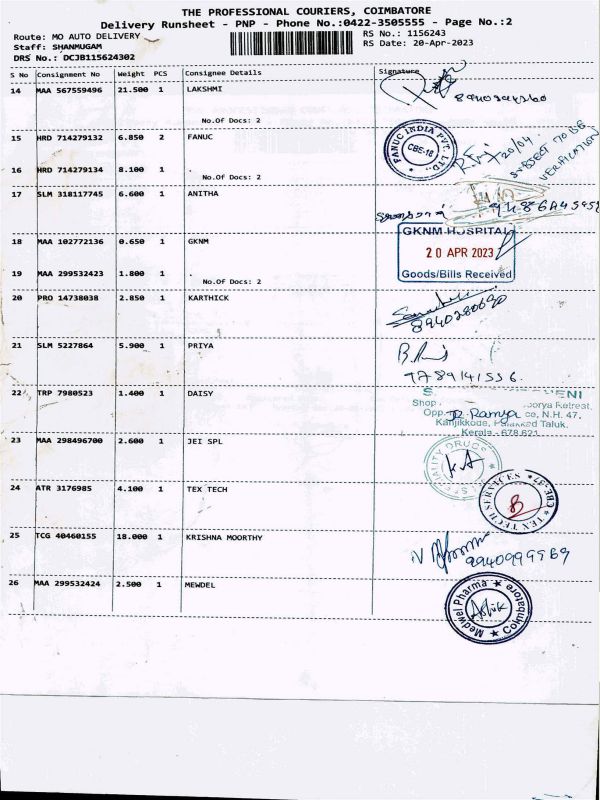 THE PROFESSIONAL COURIERS, COIMBATORE
Delivery Runsheet - PNP - Phone No.:0422-3505555 - Page No.:2
Route: MO AUTO DELIVERY RS No.: 1156243
Staff: SHANMUGAM RS Date: 20-Apr-2023
DRS No.: DCJB115624302
S No Consignment No Weight PCS Consignee Details Signature
14 MAA 567559496 21.500 1 LAKSHMI
No.Of Docs: 2
15 HRD 714279132 6.850 2 FANUC
FANUC INDIA PVT. LTD.
CBE-18
20/04
SUBJECT TO BE
VERIFICATION
16 HRD 714279134 8.100 1 .
No.Of Docs: 2
17 SLM 318117745 6.600 1 ANITHA
18 MAA 102772136 0.650 1 GKNM
GKNM HOSPITAL
20 APR 2023
Goods/Bills Received
19 MAA 299532423 1.800 1 .
No.Of Docs: 2
20 PRO 14738038 2.850 1 KARTHICK
8940280690
21 SLM 5227864 5.900 1 PRIYA
9789141556.
22 TRP 7980523 1.400 1 DAISY
Shop
Opp. R. Ramya ce, N.H. 47,
Kanjikkode, Palakkad Taluk.
Kerala - 678 621
23 MAA 298496700 2.600 1 JEI SPL
KA
24 ATR 3176985 4.100 1 TEX TECH
TEX TECH SERVICES ★ CBE-37 ★
25 TCG 40460155 18.000 1 KRISHNA MOORTHY
9940999969
26 MAA 299532424 2.500 1 MEWDEL
Medwel Pharma ★ Coimbatore ★
Ashik